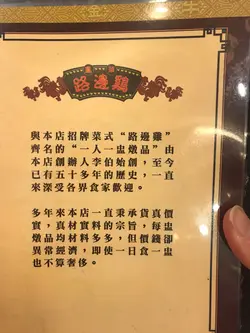 路邊鷄
與本店招牌菜式“路邊雞”
齊名的“一人一盅燉品”由
本店創辦人李伯始創，至今
已有五十多年的歷史，一直
來深受各界食家歡迎。
多年來本店一直秉承貨真價
實，真材實料的宗旨，每盅
燉品均材料多多，但價錢卻
異常經濟，即使一日食一盅
也不算奢侈。